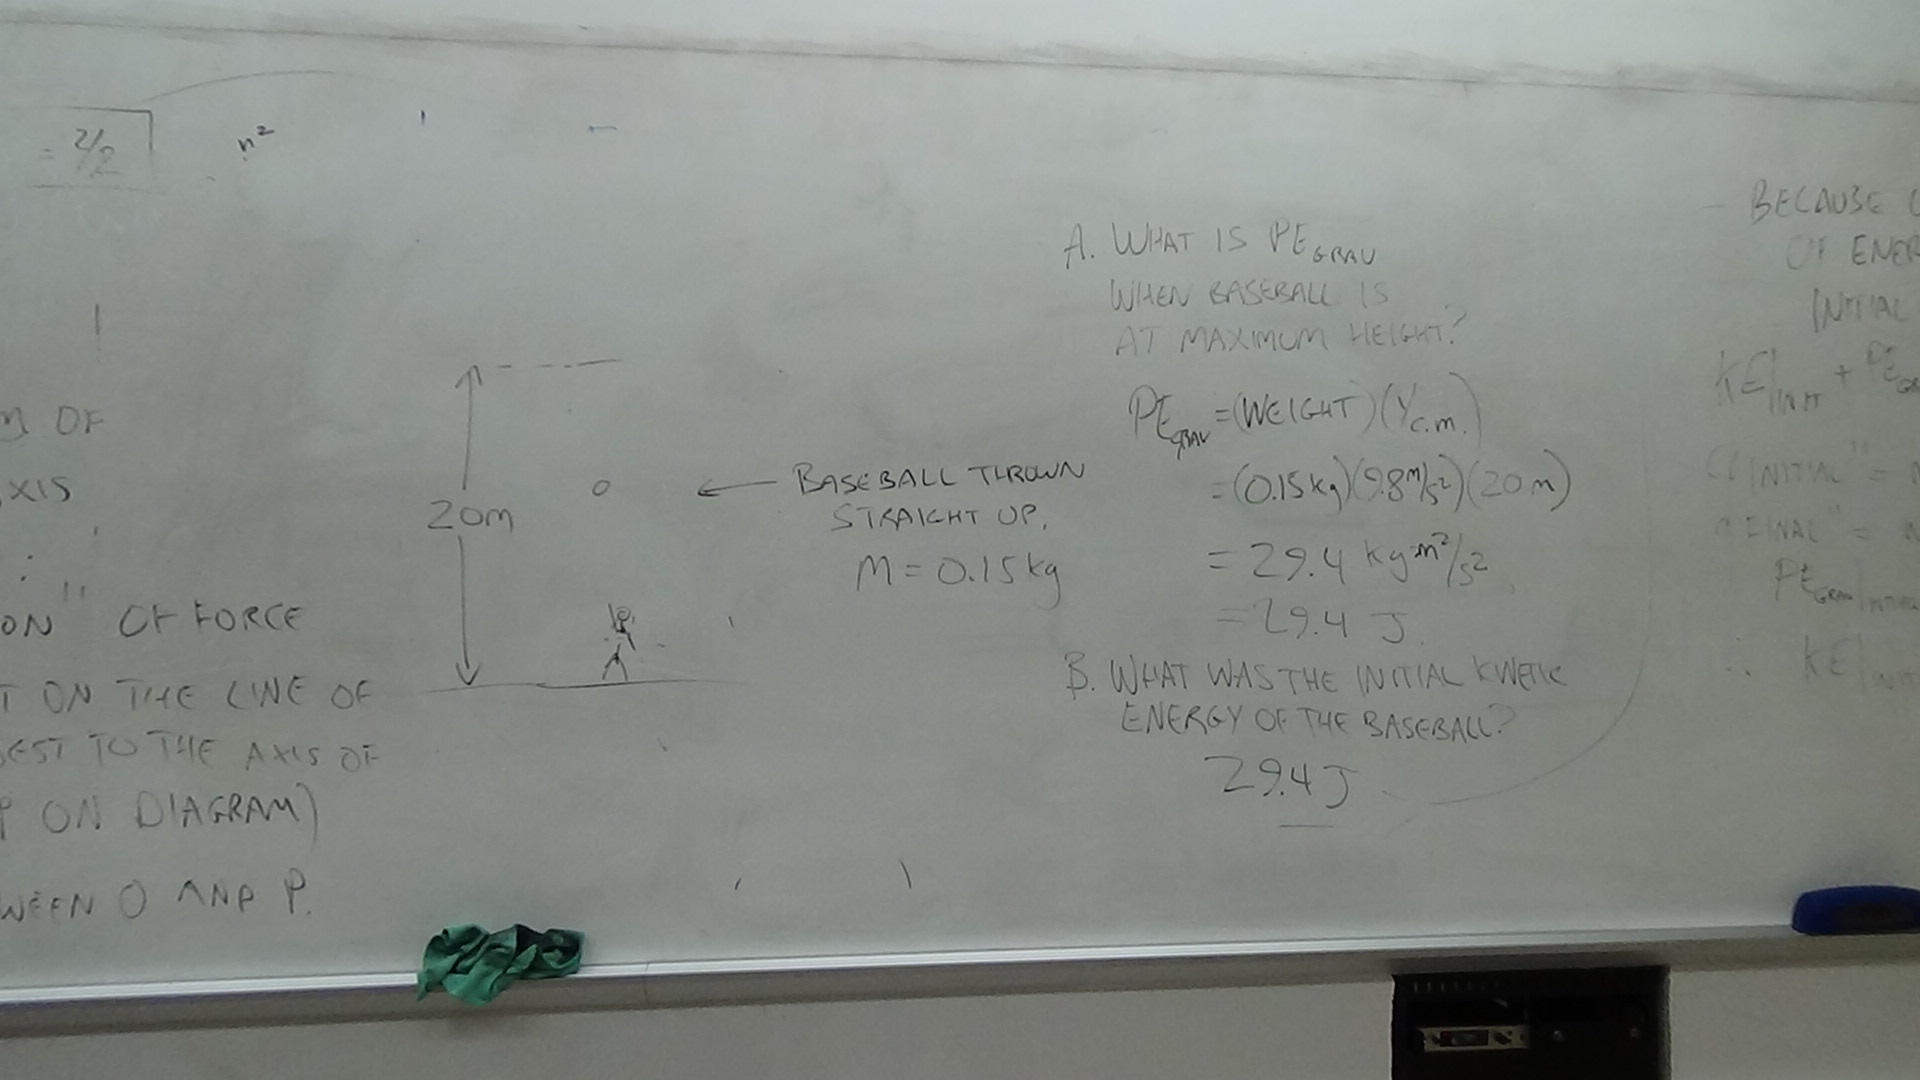 = 2/2
n²
M OF
XIS
ON" OF FORCE
T ON THE LINE OF
EST TO THE AXIS OF
P ON DIAGRAM)
WEEN O AND P.
20m
BASEBALL THROWN
STRAIGHT UP.
M = 0.15kg
A. WHAT IS PE GRAV
WHEN BASEBALL IS
AT MAXIMUM HEIGHT?
PE GRAV = (WEIGHT)(Y c.m.)
= (0.15kg)(9.8m/s²)(20m)
= 29.4 kg m²/s²
= 29.4 J
B. WHAT WAS THE INITIAL KINETIC
ENERGY OF THE BASEBALL?
29.4 J
BECAUSE
OF ENER
INITIAL
KE|INIT + PE GR
"INITIAL" =
"FINAL" =
PE GRAV|INITIAL
∴ KE|INIT